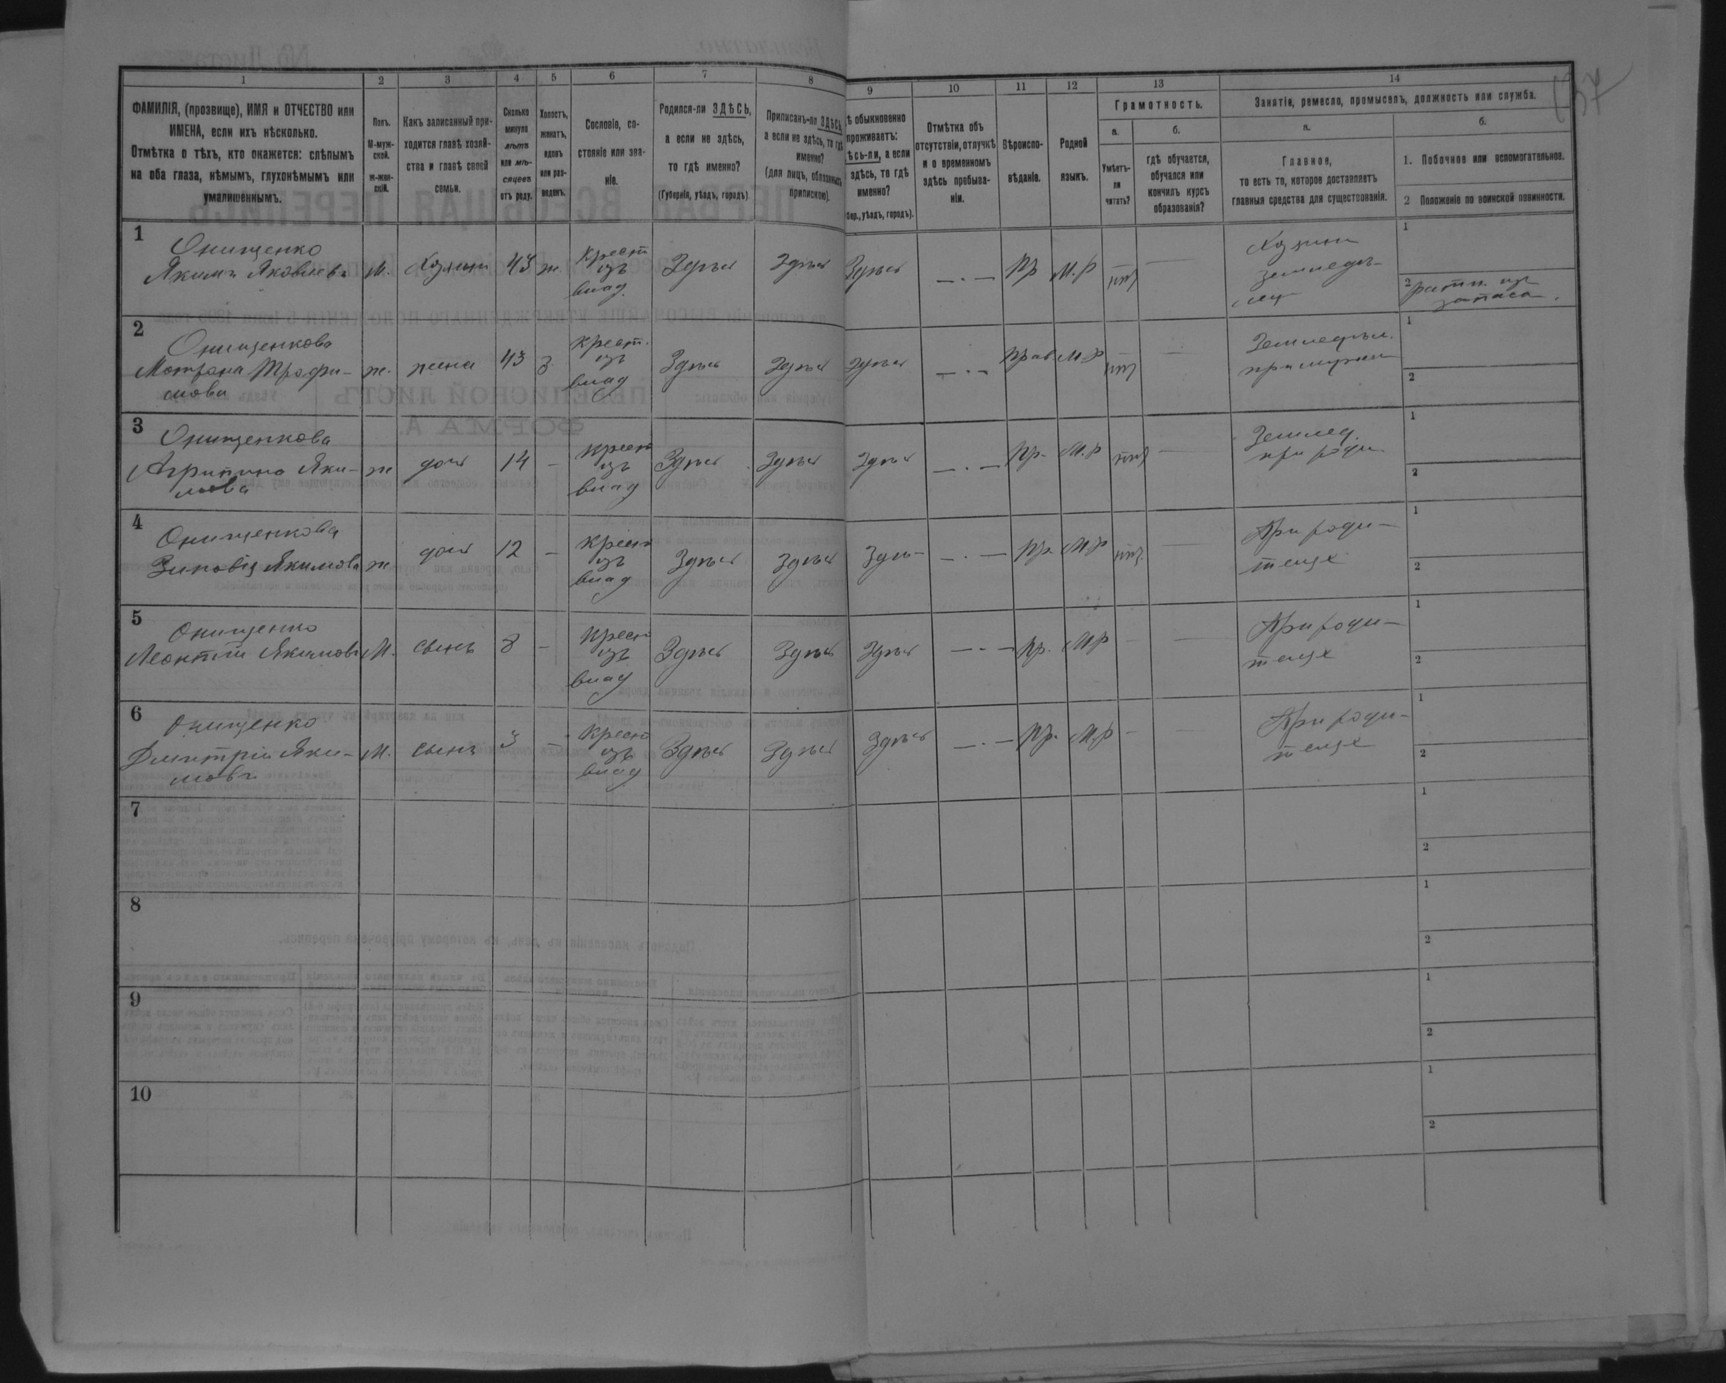 37
1 2 3 4 5 6 7 8 9 10 11 12 13 14
ФАМИЛІЯ, (прозвище), ИМЯ и ОТЧЕСТВО или
ИМЕНА, если ихъ нѣсколько.
Отмѣтка о тѣхъ, кто окажется: слѣпымъ
на оба глаза, нѣмымъ, глухонѣмымъ или
умалишеннымъ.
Полъ.
М-муж-
ской.
Ж-жен-
скій.
Какъ записанный при-
ходится главѣ хозяй-
ства и главѣ своей
семьи.
Сколько
минуло
лѣтъ
или мѣ-
сяцевъ
отъ роду.
Холостъ,
женатъ,
вдовъ
или раз-
веденъ.
Сословіе, со-
стояніе или зва-
ніе.
Родился-ли ЗДѢСЬ,
а если не здѣсь,
то гдѣ именно?
(Губернія, уѣздъ, городъ)
Приписанъ-ли ЗДѢСЬ,
а если не здѣсь, то гдѣ
именно?
(для лицъ, обязанныхъ
припискою).
ѣ обыкновенно
проживаетъ:
ѣсь-ли, а если
здѣсь, то гдѣ
именно?
бер., уѣздъ, городъ).
Отмѣтка объ
отсутствіи, отлучкѣ
и о временномъ
здѣсь пребыва-
ніи.
Вѣроиспо-
вѣданіе.
Родной
языкъ.
Грамотность.
а.
Умѣетъ-
ли
читать?
б.
гдѣ обучается,
обучался или
кончилъ курсъ
образованія?
Занятія, ремесло, промыселъ, должность или служба.
а.
Главное,
то есть то, которое доставляетъ
главныя средства для существованія.
б.
1. Побочное или вспомогательное.
2 Положеніе по воинской повинности.
1
Онищенко
Якимъ Яковлевъ М. Хозяинъ 43 ж. Крест. Здѣсь Здѣсь Здѣсь — · — Пр М.р нѣтъ —
изъ
влад.
Хозяинъ
земледѣ-
лец
1
2 ратн. изъ
запаса.
2
Онищенкова
Мотрона Трофи- ж. жена 43 з. Крест. Здѣсь Здѣсь Здѣсь — · — Прав М.р нѣтъ —
мова
изъ
влад
Земледѣл.
при мужѣ
1
2
3
Онищенкова
Агрипина Яки- ж доч 14 — Крест Здѣсь Здѣсь Здѣсь — · — Пр. М.р нѣтъ —
мова
изъ
влад
Землед.
при роди
1
2
4
Онищенкова
Зиновія Якимова ж доч 12 — Крест Здѣсь Здѣсь Здѣ— — · — Пр. М.р нѣт. —
изъ
влад
При роди—
телѣ
1
2
5
Онищенко
Леонтій Якимовъ М. сынъ 8 — Крест Здѣсь Здѣсь Здѣсь — · — Пр. М.р — —
изъ
влад
При роди—
телѣ
1
2
6
Онищенко
Дмитрій Яки- М. сынъ 3 — Крест Здѣсь Здѣсь Здѣсь — · — Пр. М.р — —
мовъ
изъ
влад
При роди-
телѣ
1
2
7
1
2
8
1
2
9
1
2
10
1
2